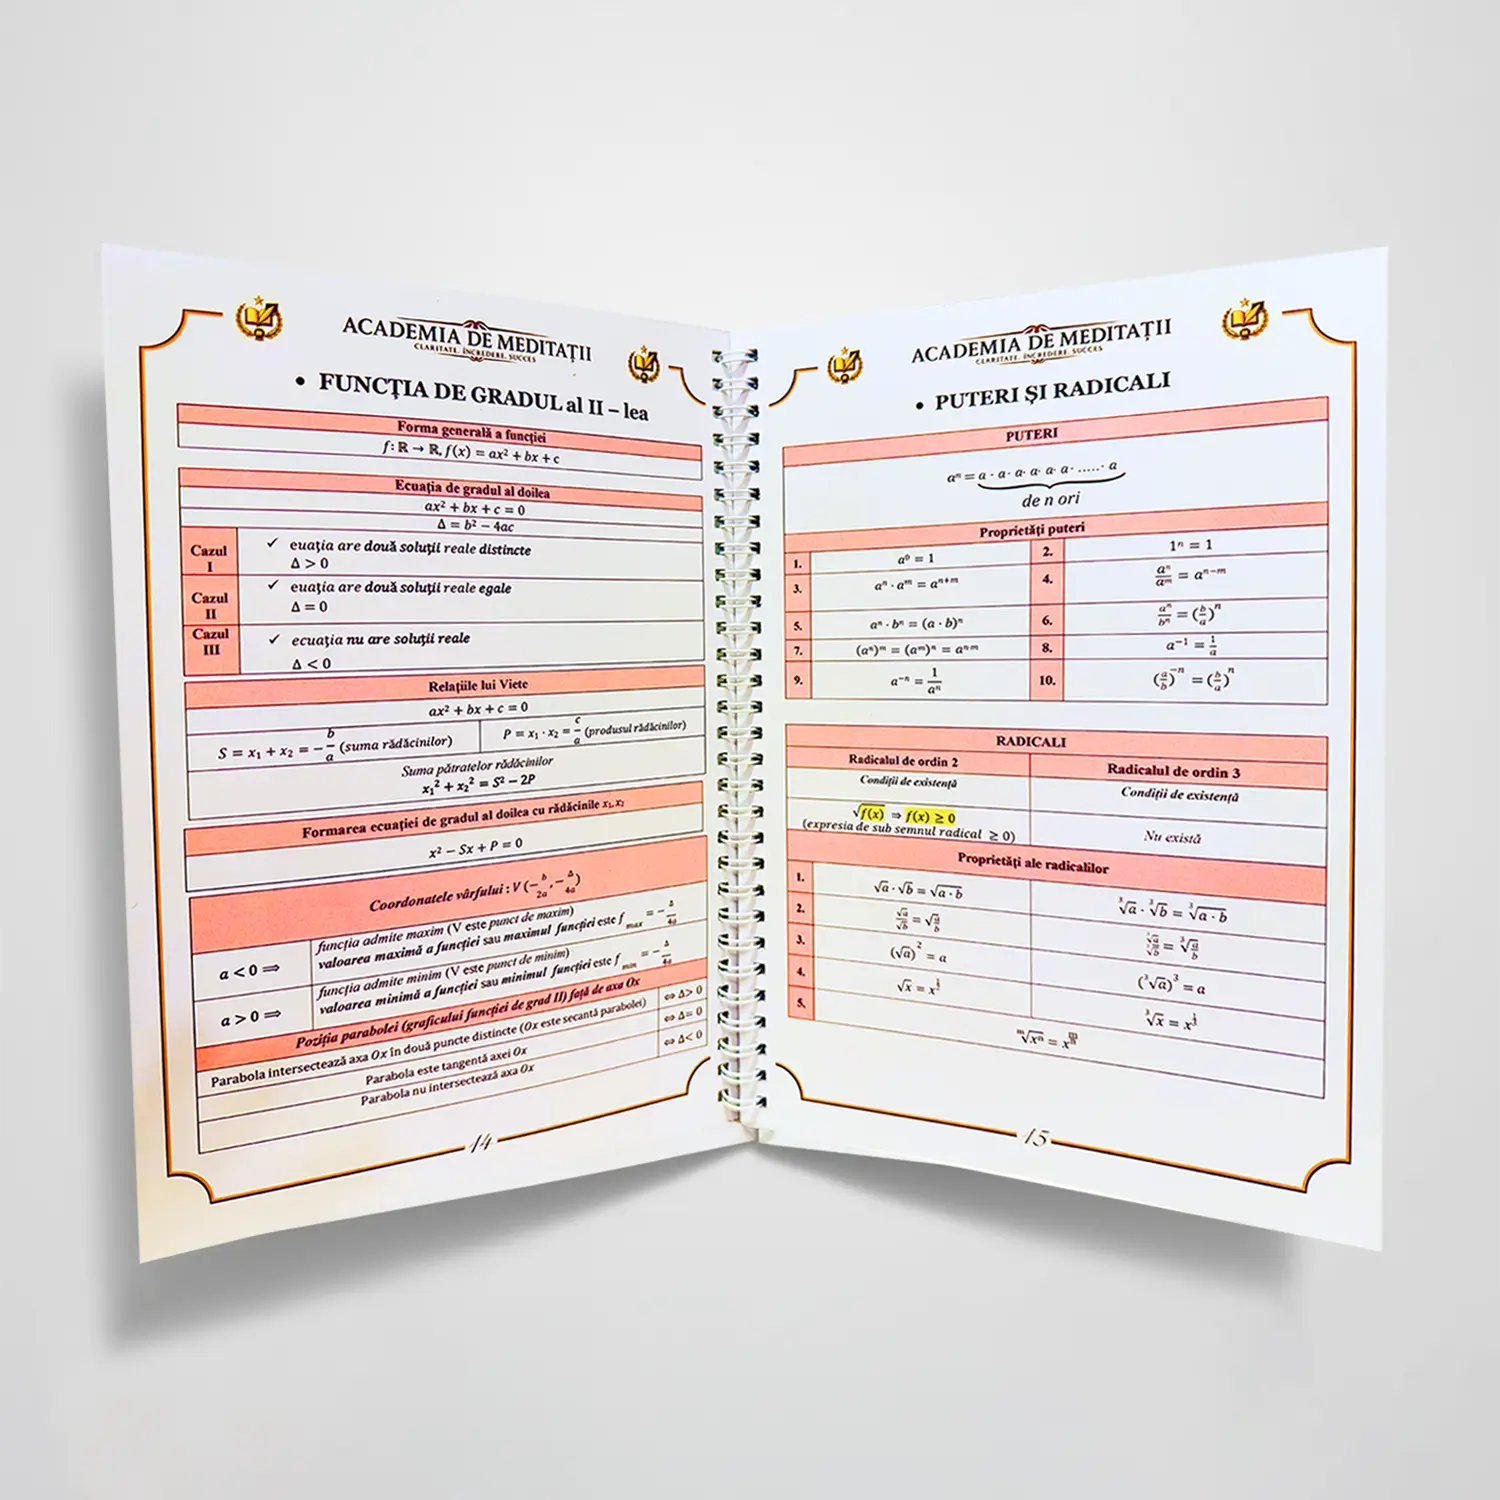 ACADEMIA DE MEDITAȚII
CLARITATE. ÎNCREDERE. SUCCES
• FUNCȚIA DE GRADUL al II – lea
Forma generală a funcției
f: ℝ → ℝ, f(x) = ax² + bx + c
Ecuația de gradul al doilea
ax² + bx + c = 0
Δ = b² − 4ac
Cazul I
✓ euația are două soluții reale distincte
Δ > 0
Cazul II
✓ euația are două soluții reale egale
Δ = 0
Cazul III
✓ ecuația nu are soluții reale
Δ < 0
Relațiile lui Viete
ax² + bx + c = 0
S = x₁ + x₂ = −b/a (suma rădăcinilor)
P = x₁ · x₂ = c/a (produsul rădăcinilor)
Suma pătratelor rădăcinilor
x₁² + x₂² = S² − 2P
Formarea ecuației de gradul al doilea cu rădăcinile x₁, x₂
x² − Sx + P = 0
Coordonatele vârfului : V (−b/2a, −Δ/4a)
a < 0 ⟹
funcția admite maxim (V este punct de maxim)
valoarea maximă a funcției sau maximul funcției este f max = −Δ/4a
a > 0 ⟹
funcția admite minim (V este punct de minim)
valoarea minimă a funcției sau minimul funcției este f min = −Δ/4a
Poziția parabolei (graficului funcției de grad II) față de axa Ox
Parabola intersectează axa Ox în două puncte distincte (Ox este secantă parabolei) ⇔ Δ> 0
Parabola este tangentă axei Ox ⇔ Δ= 0
Parabola nu intersectează axa Ox ⇔ Δ< 0
14
ACADEMIA DE MEDITAȚII
CLARITATE. ÎNCREDERE. SUCCES
• PUTERI ȘI RADICALI
PUTERI
aⁿ = a · a · a· a· a· a· ..... · a
de n ori
Proprietăți puteri
1. a⁰ = 1
2. 1ⁿ = 1
3. aⁿ · aᵐ = aⁿ⁺ᵐ
4. aⁿ/aᵐ = aⁿ⁻ᵐ
5. aⁿ · bⁿ = (a · b)ⁿ
6. aⁿ/bⁿ = (b/a)ⁿ
7. (aⁿ)ᵐ = (aᵐ)ⁿ = aⁿ·ᵐ
8. a⁻¹ = 1/a
9. a⁻ⁿ = 1/aⁿ
10. (a/b)⁻ⁿ = (b/a)ⁿ
RADICALI
Radicalul de ordin 2
Radicalul de ordin 3
Condiții de existență
Condiții de existență
√f(x) ⇒ f(x) ≥ 0
(expresia de sub semnul radical ≥ 0)
Nu există
Proprietăți ale radicalilor
1. √a · √b = √a · b
³√a · ³√b = ³√a · b
2. √a/√b = √a/b
³√a/³√b = ³√a/b
3. (√a)² = a
(³√a)³ = a
4. √x = x^1/2
³√x = x^1/3
5. ᵐ√xⁿ = x^n/m
15